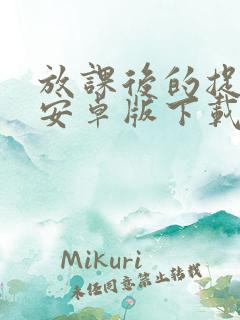 放課後的捉
安卓版下載
Mikuri
未任同意禁止转载